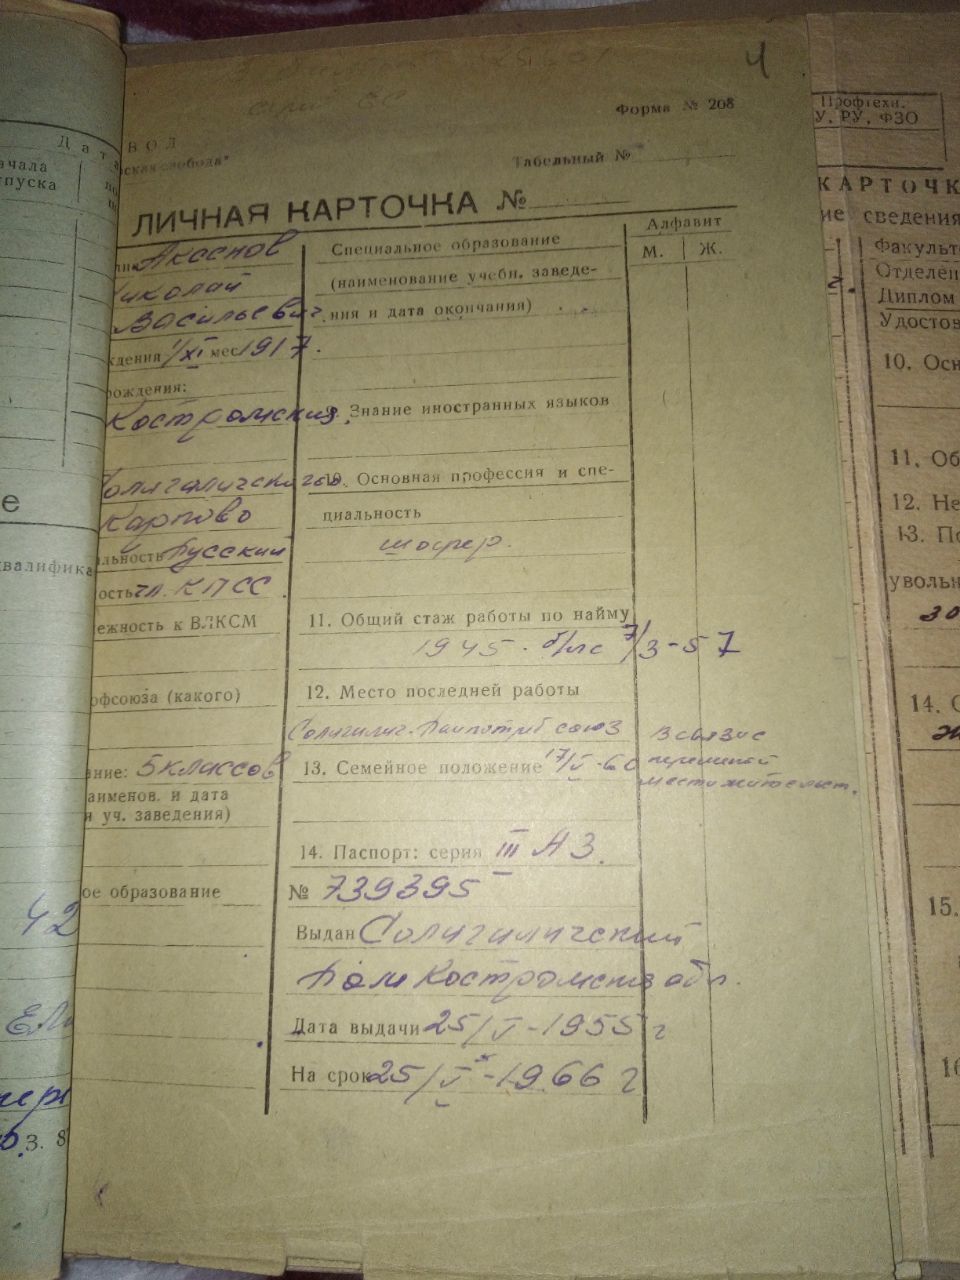 4
Форма № 208
ВОЛ
ская слобода"
Табельный №
ЛИЧНАЯ КАРТОЧКА №
Аксенов
Николай
Васильевич
ждения 1/XI мес 1917.
рождения:
Костромская
Солигаличский
Карпово
альность Русский
ность чл. КПСС.
лежность к ВЛКСМ
офсоюза (какого)
ание: 5 классов
наименов. и дата
я уч. заведения)
ое образование
Специальное образование
(наименование учебн. заведе-
ния и дата окончания)
Знание иностранных языков
10. Основная профессия и спе-
циальность
шофер.
11. Общий стаж работы по найму
1945. б/лс 7/3-57
12. Место последней работы
Солигалич. Райпотребсоюз
в связи с
переменой
местожительст.
13. Семейное положение 17/V-60
14. Паспорт: серия III АЗ.
№ 739395
Выдан Солигаличский
Ром Костромской обл.
Дата выдачи 25/V-1955 г
На срок 25/V-1966 г
Алфавит
М. Ж.
Дата
ачала
тпуска
е
квалифика
42
З. 8
Профтехн.
У, РУ, ФЗО
КАРТОЧК
ие сведения
Факульте
Отделен
Диплом
Удостов
10. Осн
11. Об
12. Не
13. По
увольн
30
14. С
15.
16